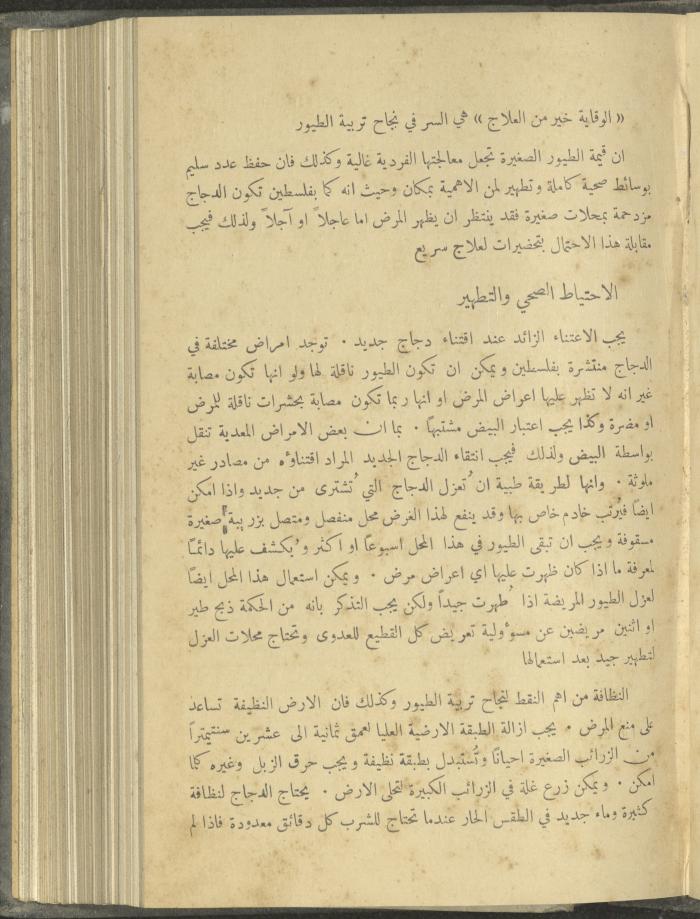 « الوقاية خير من العلاج » هي السر في نجاح تربية الطيور
ان قيمة الطيور الصغيرة تجعل معالجتها الفردية غالية وكذلك فان حفظ عدد سليم
بوسائط صحية كاملة وتطهير لمن الاهمية بمكان وحيث انه كما بفلسطين تكون الدجاج
مزدحمة بمحلات صغيرة فقد ينتظر ان يظهر المرض اما عاجلاً او آجلاً ولذلك فيجب
مقابلة هذا الاحتمال بتحضيرات لعلاج سريع
الاحتياط الصحي والتطهير
يجب الاعتناء الزائد عند اقتناء دجاج جديد . توجد امراض مختلفة في
الدجاج منتشرة بفلسطين ويمكن ان تكون الطيور ناقلة لها ولو انها تكون مصابة
غير انه لا تظهر عليها اعراض المرض او انها ربما تكون مصابة بحشرات ناقلة للمرض
او مضرة وكذا يجب اعتبار البيض مشتبهاً . بما ان بعض الامراض المعدية تنقل
بواسطة البيض ولذلك فيجب انتقاء الدجاج الجديد المراد اقتناؤه من مصادر غير
ملوثة . وانها لطريقة طبية ان تُعزل الدجاج التي تُشترى من جديد واذا امكن
ايضاً فيُرتب خادم خاص بها وقد ينفع لهذا الغرض محل منفصل ومتصل بزريبة صغيرة
مسقوفة ويجب ان تبقى الطيور في هذا المحل اسبوعاً او اكثر ويُكشف عليها دائماً
لمعرفة ما اذا كان ظهرت عليها اي اعراض مرض . ويمكن استعمال هذا المحل ايضاً
لعزل الطيور المريضة اذا طُهرت جيداً ولكن يجب التذكر بانه من الحكمة ذبح طير
او اثنين مريضين عن مسؤولية تعريض كل القطيع للعدوى وتحتاج محلات العزل
لتطهير جيد بعد استعمالها
النظافة من اهم النقط لنجاح تربية الطيور وكذلك فان الارض النظيفة تساعد
على منع المرض . يجب ازالة الطبقة الارضية العليا لعمق ثمانية الى عشرين سنتيمتراً
من الزرائب الصغيرة احياناً وتُستبدل بطبقة نظيفة ويجب حرق الزبل وغيره كلما
امكن . ويمكن زرع غلة في الزرائب الكبيرة لتحلى الارض . يحتاج الدجاج لنظافة
كثيرة وماء جديد في الطقس الحار عندما تحتاج للشرب كل دقائق معدودة فاذا لم